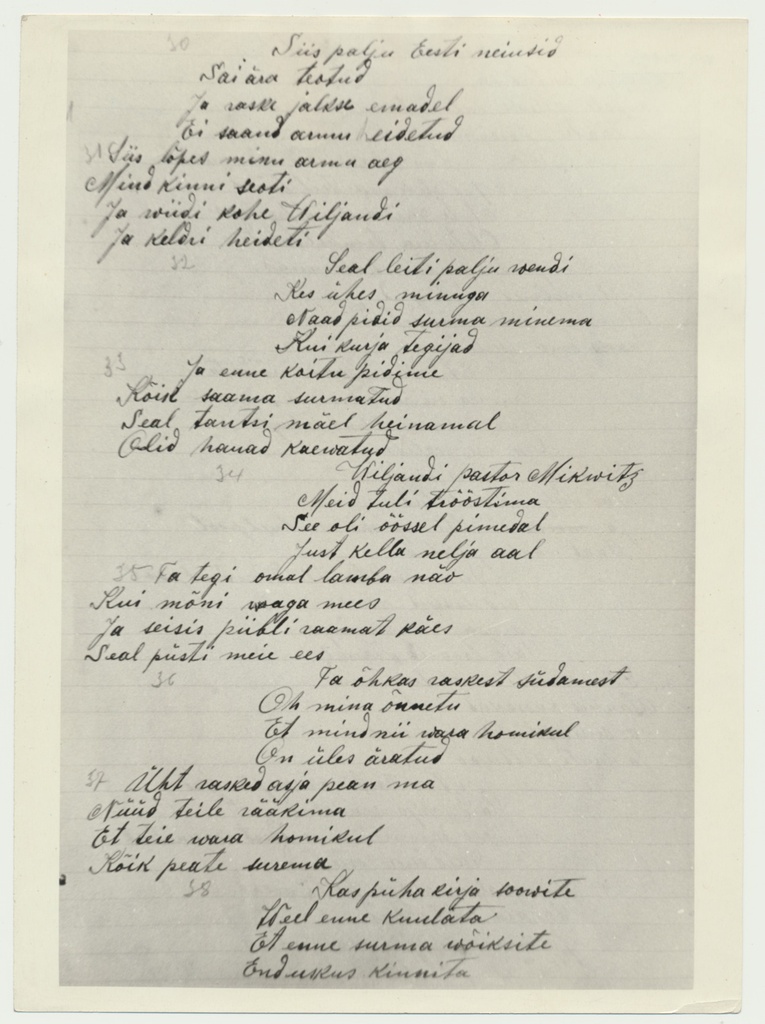 30 Siis palju Eesti neiusid
Sai ära teotud
Ja raske jalkse emadel
Ei saand armu heidetud
31 Siis lõpes minu arma aeg
Mind kinni seoti
Ja wiidi kohe Wiljandi
Ja keldri heideti
32 Seal leiti palju wendi
Kes ühes minuga
Naad pidid surma minema
Kui kurja tegijad
33 Ja enne koitu pidime
Kõik saama surmatud
Seal tantsi mäel heinamal
Olid hauad kaewatud
34 Wiljandi pastor Mikwitz
Meid tuli trööstima
See oli öössel pimedal
Just kella nelja aal
35 Ta tegi omal lamba näo
Kui mõni waga mees
Ja seisis piibli raamat käes
Seal püsti meie ees
36 Ta õhkas raskest südamest
Oh mina õnnetu
Et mind nii wara homikul
On üles äratud
37 Üht rasked asja pean ma
Nüüd teile rääkima
Et teie wara homikul
Kõik peate surema
38 Kas püha kirja soowite
Weel enne kuulata
Et enne surma wõiksite
End uskus kinnita